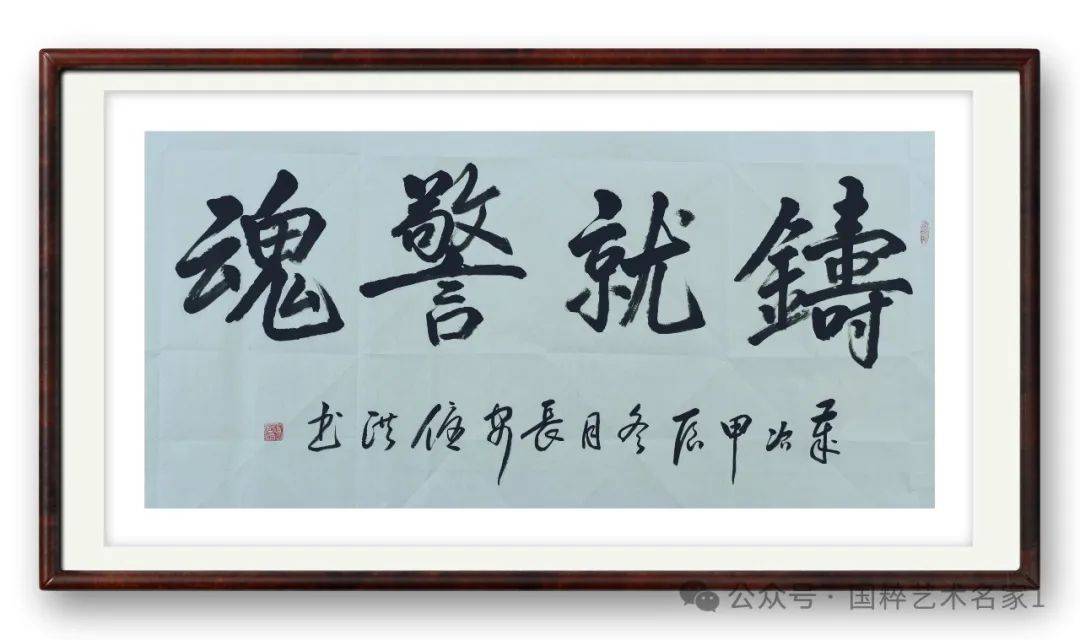 鑄就警魂
歲次甲辰冬月長安任洪书
公众号 · 国粹艺术名家1